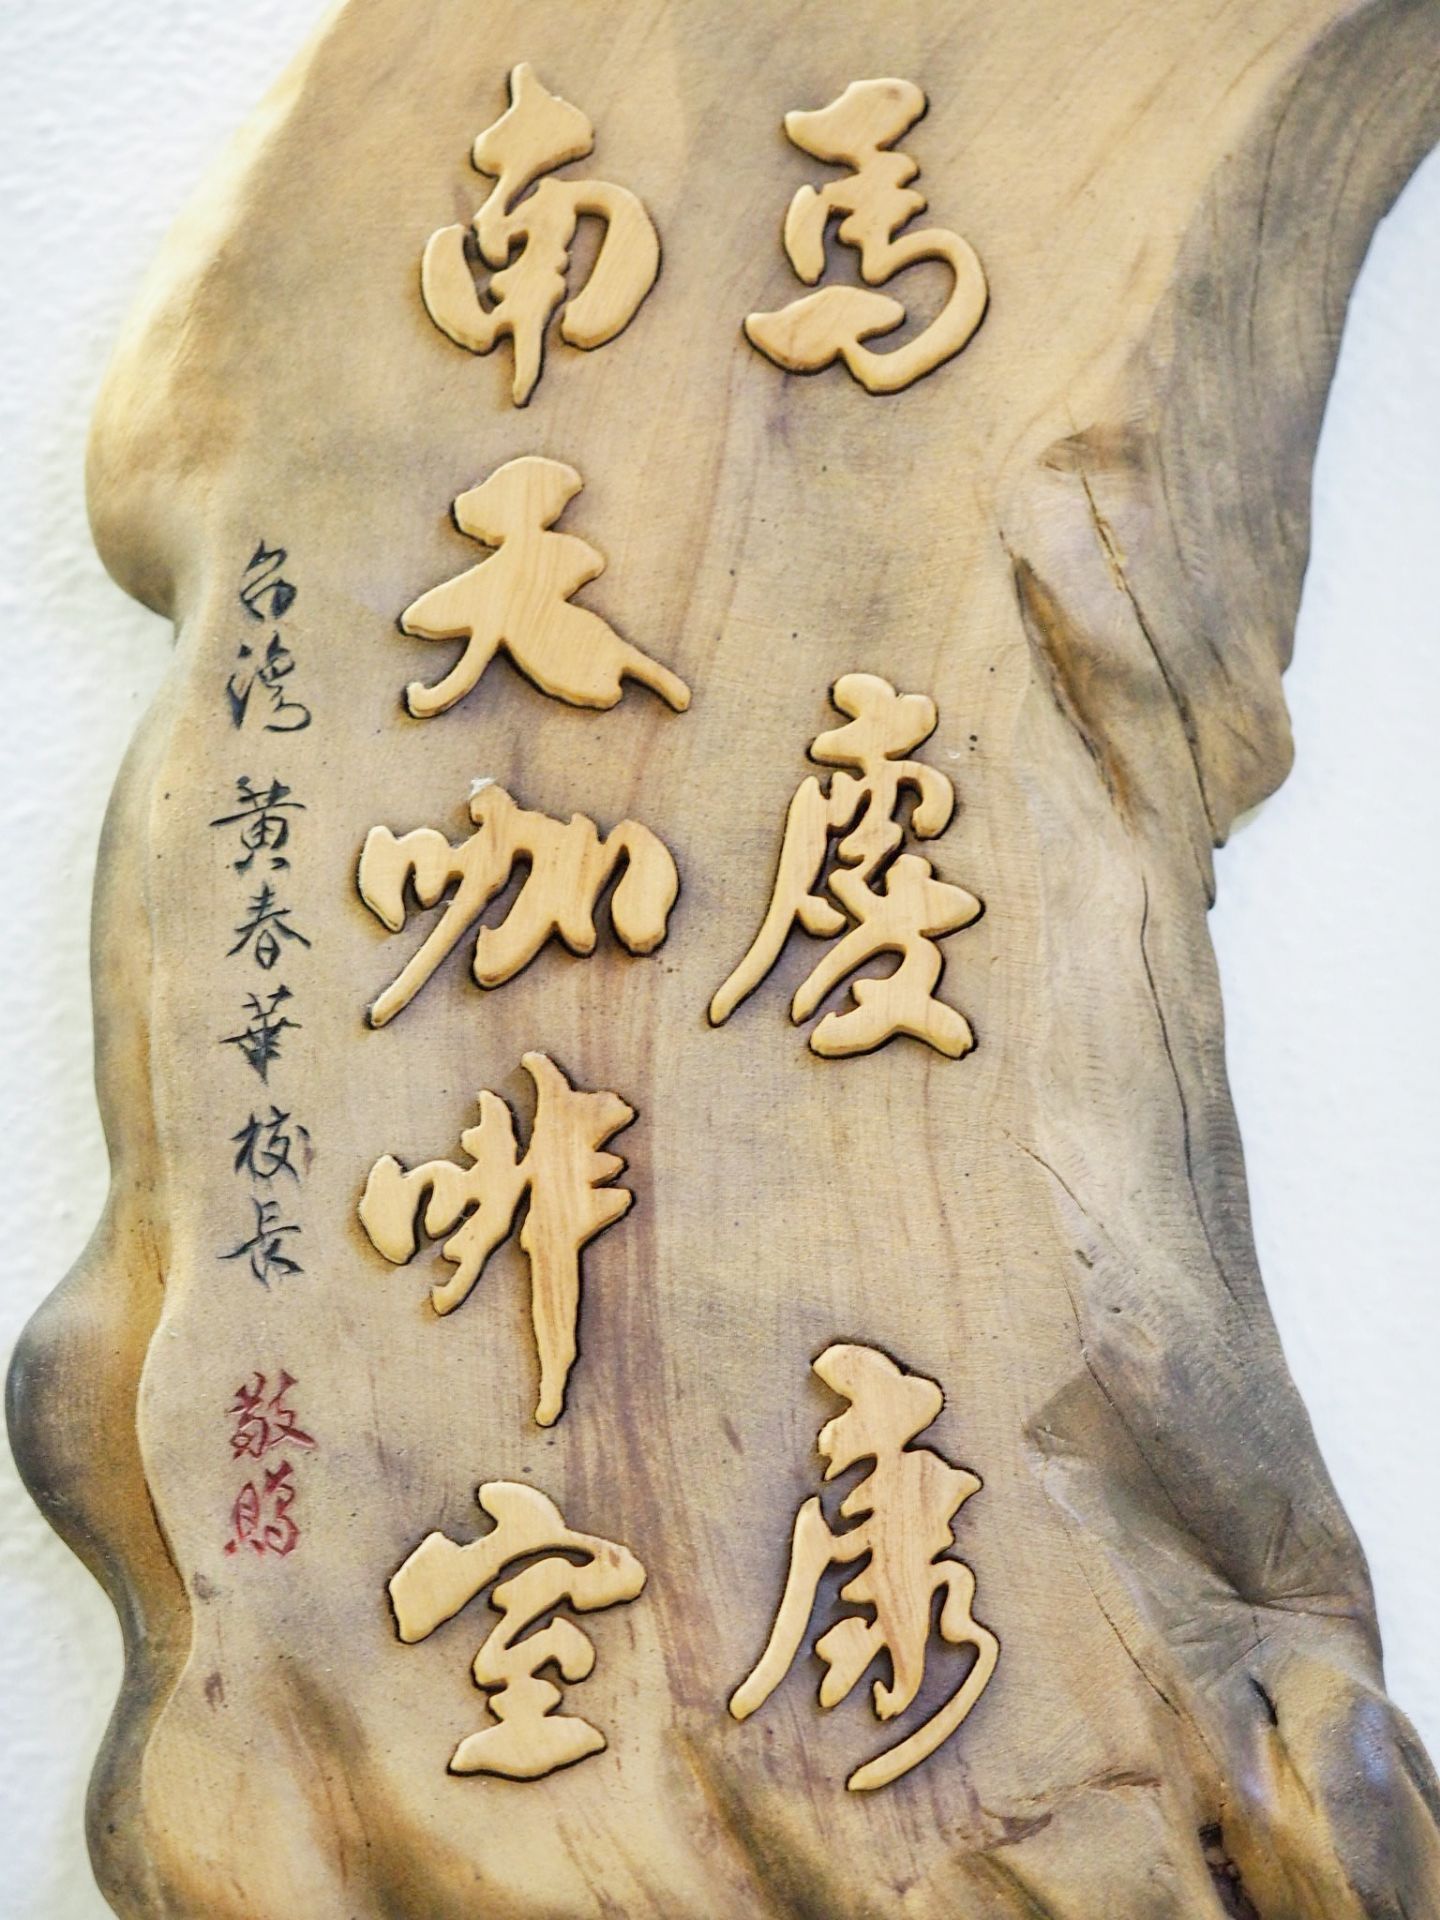 馬慶康
南天咖啡室
台灣 黃春華校長 敬贈